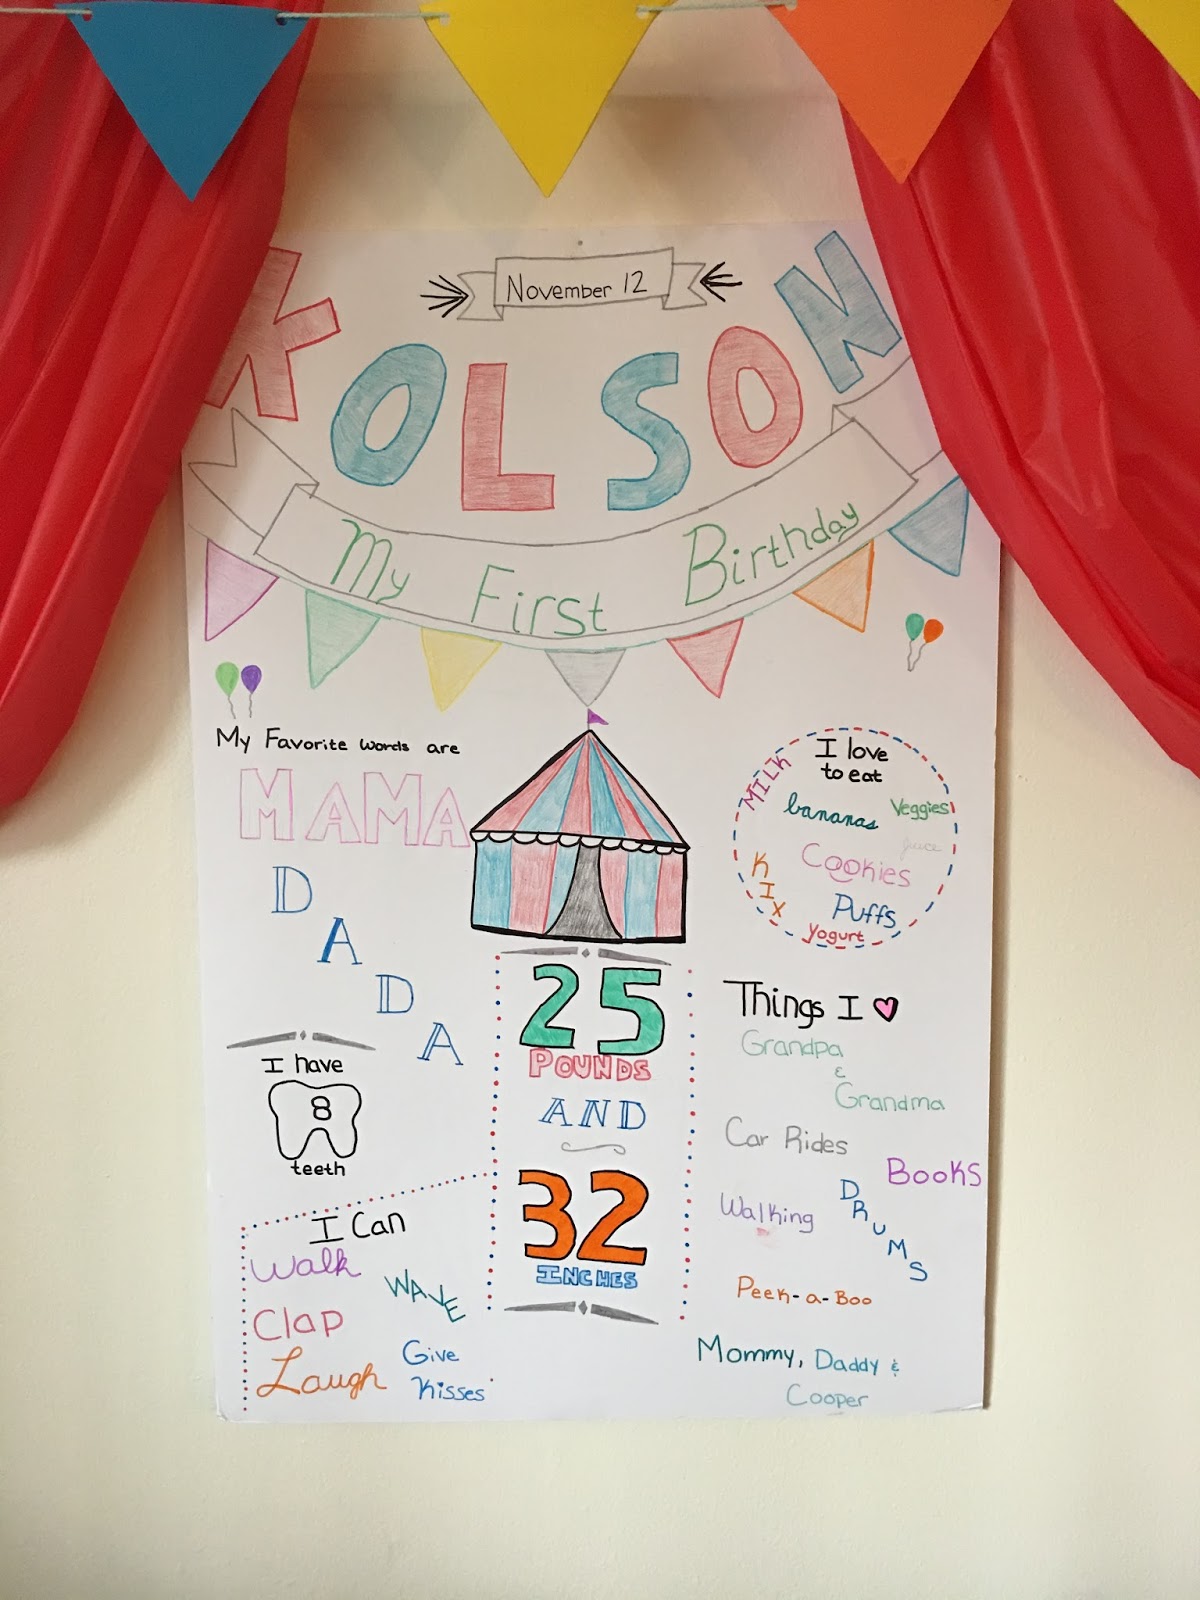 November 12
KOLSON
My First Birthday
My Favorite words are
MAMA
DADA
I have
8
teeth
I Can
Walk
WAVE
Clap
Laugh
Give
Kisses
25
POUNDS
AND
32
INCHES
I love
to eat
MILK
bananas
Veggies
juice
Cookies
KIX
Puffs
Yogurt
Things I
Grandpa
&
Grandma
Car Rides
Books
Walking
DRUMS
Peek-a-Boo
Mommy, Daddy &
Cooper